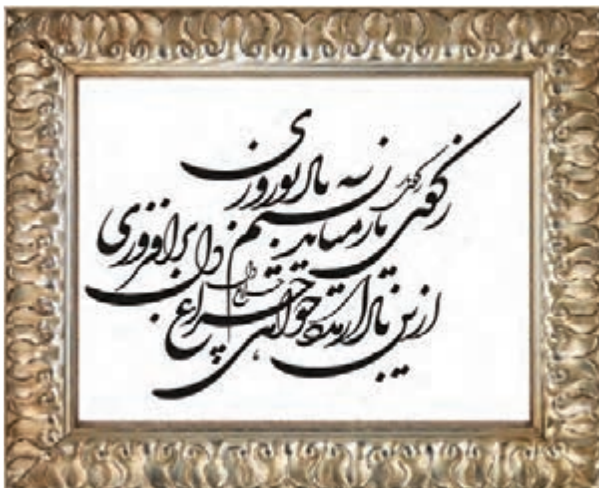 ز کوی یار میآید نسیم باد نوروزی
ازین باد ار مدد خواهی چراغ دل برافروزی
چراغ دل